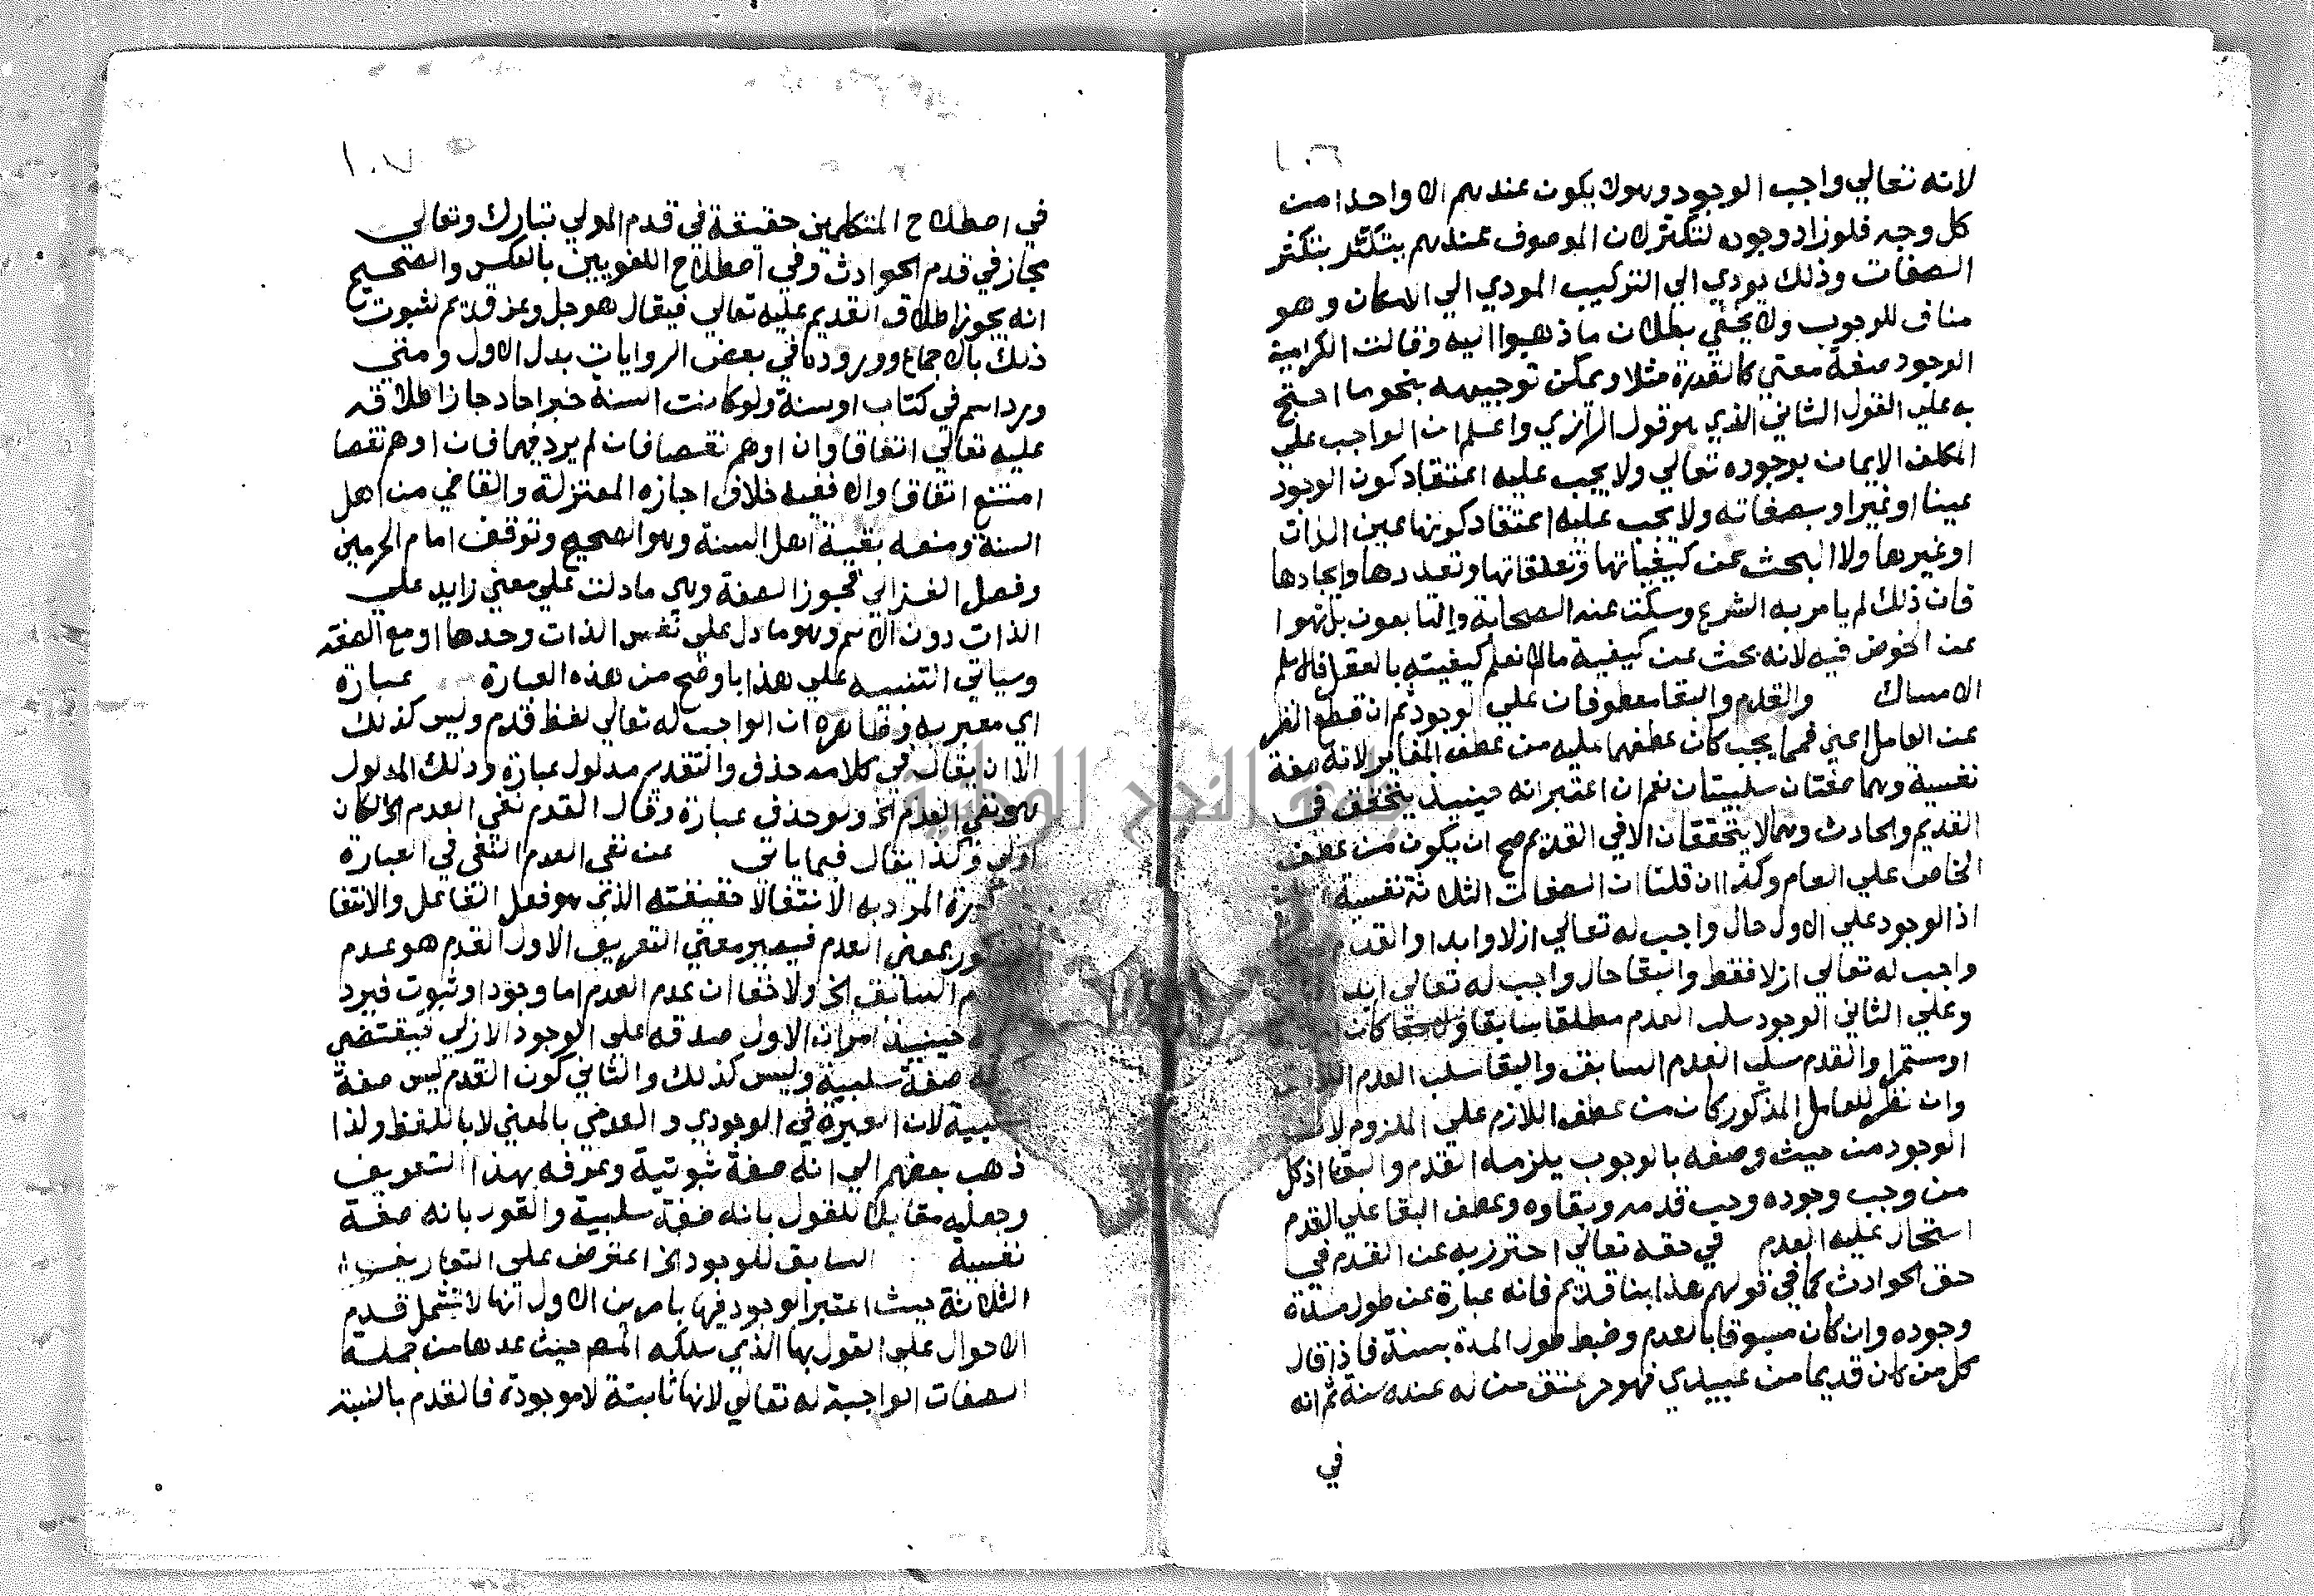 ١٠٦
لانه تعالي واجب الوجود وهو لا يكون عندهم الا واحدا من
كل وجه فلو زاد وجوده لتكثر لان الموصوف عندهم يتكثر بتكثر
الصفات وذلك يودي الي التركيب المودي الي الامكان وهو
مناف للوجوب ولا يخفي بطلان ما ذهبوا اليه وقالت الكرامية
الوجود صفة معني كالقدرة مثلا ويمكن توجيهه بنحو ما احتج
به علي القول الثاني الذي هو قول الرازي واعلم ان الواجب علي
المكلف الايمان بوجوده تعالي ولا يجب عليه اعتقاد كون الوجود
عينا او غيرا وبصفاته ولا يجب عليه اعتقاد كونها عين الذات
او غيرها ولا البحث عن كيفياتها وتعلقاتها وتعددها وايجادها
فان ذلك لم يامر به الشرع وسكت عنه الصحابة والتابعون بل نهوا
عن الخوض فيه لانه بحث عن كيفية ما لا نعلم كيفيته بالعقل فالاسلم
الامساك والقدم والبقا معطوفان علي الوجود ثم ان قطع النظر
عن العامل اعني فمما يجب كان عطفهما عليه من عطف المغاير لانه صفة
نفسية وهما صفتان سلبيتان نعم ان اعتبر انه حينيذ يتحقق في
القديم والحادث وهما لا يتحققان الا في القديم صح ان يكون من عطف
الخاص علي العام وكذا ان قلنا ان الصفات الثلاثة نفسية
اذ الوجود علي الاول حال واجب له تعالي ازلا وابدا والقدم
واجب له تعالي ازلا فقط والبقا حال واجب له تعالي ابدا
وعلي الثاني الوجود سلب العدم مطلقا سابقا ولاحقا كان
او مستمرا والقدم سلب العدم السابق والبقا سلب العدم
وان نظر للعامل المذكور كان من عطف اللازم علي الملزوم لان
الوجود من حيث وصفه بالوجوب يلزمه القدم والبقا اذ كل
من وجب وجوده وجب قدمه وبقاوه وعطف البقا علي القدم
استحال عليه العدم في حقه تعالي احترز به عن القدم في
حق الحوادث كما في قولهم هذا بنا قديم فانه عبارة عن طول مدة
وجوده وان كان مسبوقا بالعدم وضبط طول المدة بسنة فاذا قال
كل من كان قديما من عبيدي فهو حر عتق من له عنده سنة ثم انه
في
١٠٧
في اصطلاح المتكلمين حقيقة في قدم المولي تبارك وتعالي
مجاز في قدم الحوادث وفي اصطلاح اللغويين بالعكس والصحيح
انه يجوز اطلاق القديم عليه تعالي فيقال هو جل وعز قديم لثبوت
ذلك بالاجماع ووروده في بعض الروايات بدل الاول ومتي
ورد اسم في كتاب او سنة ولو كانت السنة خبر احاد جاز اطلاقه
عليه تعالي اتفاقا وان اوهم نقصا فان لم يرد فيهما فان اوهم نقصا
امتنع اتفاقا والا ففيه خلاف اجازه المعتزلة والقاضي من اهل
السنة ومنعه بقية اهل السنة وهو الصحيح وتوقف امام الحرمين
وفصل الغزالي فجوز الصفة وهي ما دلت علي معني زايد علي
الذات دون الاسم وهو ما دل علي نفس الذات وحدها او مع الصفة
وسياتي التنبيه علي هذا باوضح من هذه العبارة عبارة
اي معبر به وظاهره ان الواجب له تعالي لفظ قدم وليس كذلك
الا ان يقال في كلامه حذف والتقدير مدلول عبارة وذلك المدلول
هو نفي العدم الخ ولو حذف عبارة وقال القدم نفي العدم الخ لكان
اولي وكذا يقال فيما ياتي عن نفي العدم النفي في العبارة
المراد به الانتفا لا حقيقته الذي هو فعل الفاعل والانتفا
بمعني العدم فيصير معني التعريف الاول القدم هو عدم
السابق الخ ولا خفا ان عدم العدم اما وجود او ثبوت فيرد
حينيذ امران الاول صدقه علي الوجود الازلي فيقتضي
صفة سلبية وليس كذلك والثاني كون القدم ليس صفة
سلبية لان العبرة في الوجودي والعدمي بالمعني لا باللفظ ولذا
ذهب بعضهم الي انه صفة ثبوتية وعرفه بهذا التعريف
وجعله مقابلا للقول بانه صفة سلبية والقول بانه صفة
نفسية السابق للوجود الخ اعترض علي التعاريف
الثلاثة حيث اعتبر الوجود فيها بامرين الاول انها لا تشمل قدم
الاحوال علي القول بها الذي سلكه المصم حيث عدها من جملة
الصفات الواجبة له تعالي لانها ثابتة لا موجودة فالقدم بالنسبة
جامعة النجاح الوطنية